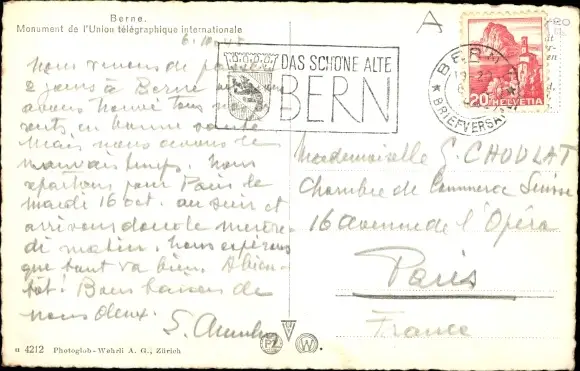 Berne.
Monument de l'Union télégraphique internationale
6. 10.
Nous venons de passer
2 jours à Berne
avons trouvé tous nos
en bonne santé
Mais nous avons le
mauvais temps. Nous
repartons pour Paris le
mardi 16 oct. au soir et
arrivons donc le mercre-
di matin. Nous espérons
que tout va bien. A bien-
tôt! Bons baisers de
nous deux.
S.
DAS SCHÖNE ALTE
BERN
BERN
BRIEFVERSAND
20 HELVETIA
A
Mademoiselle S. CHOULAT
Chambre de Commerce Suisse
16 avenue de l'Opéra
Paris
France
4212 Photoglob-Wehrli A. G., Zürich
P W